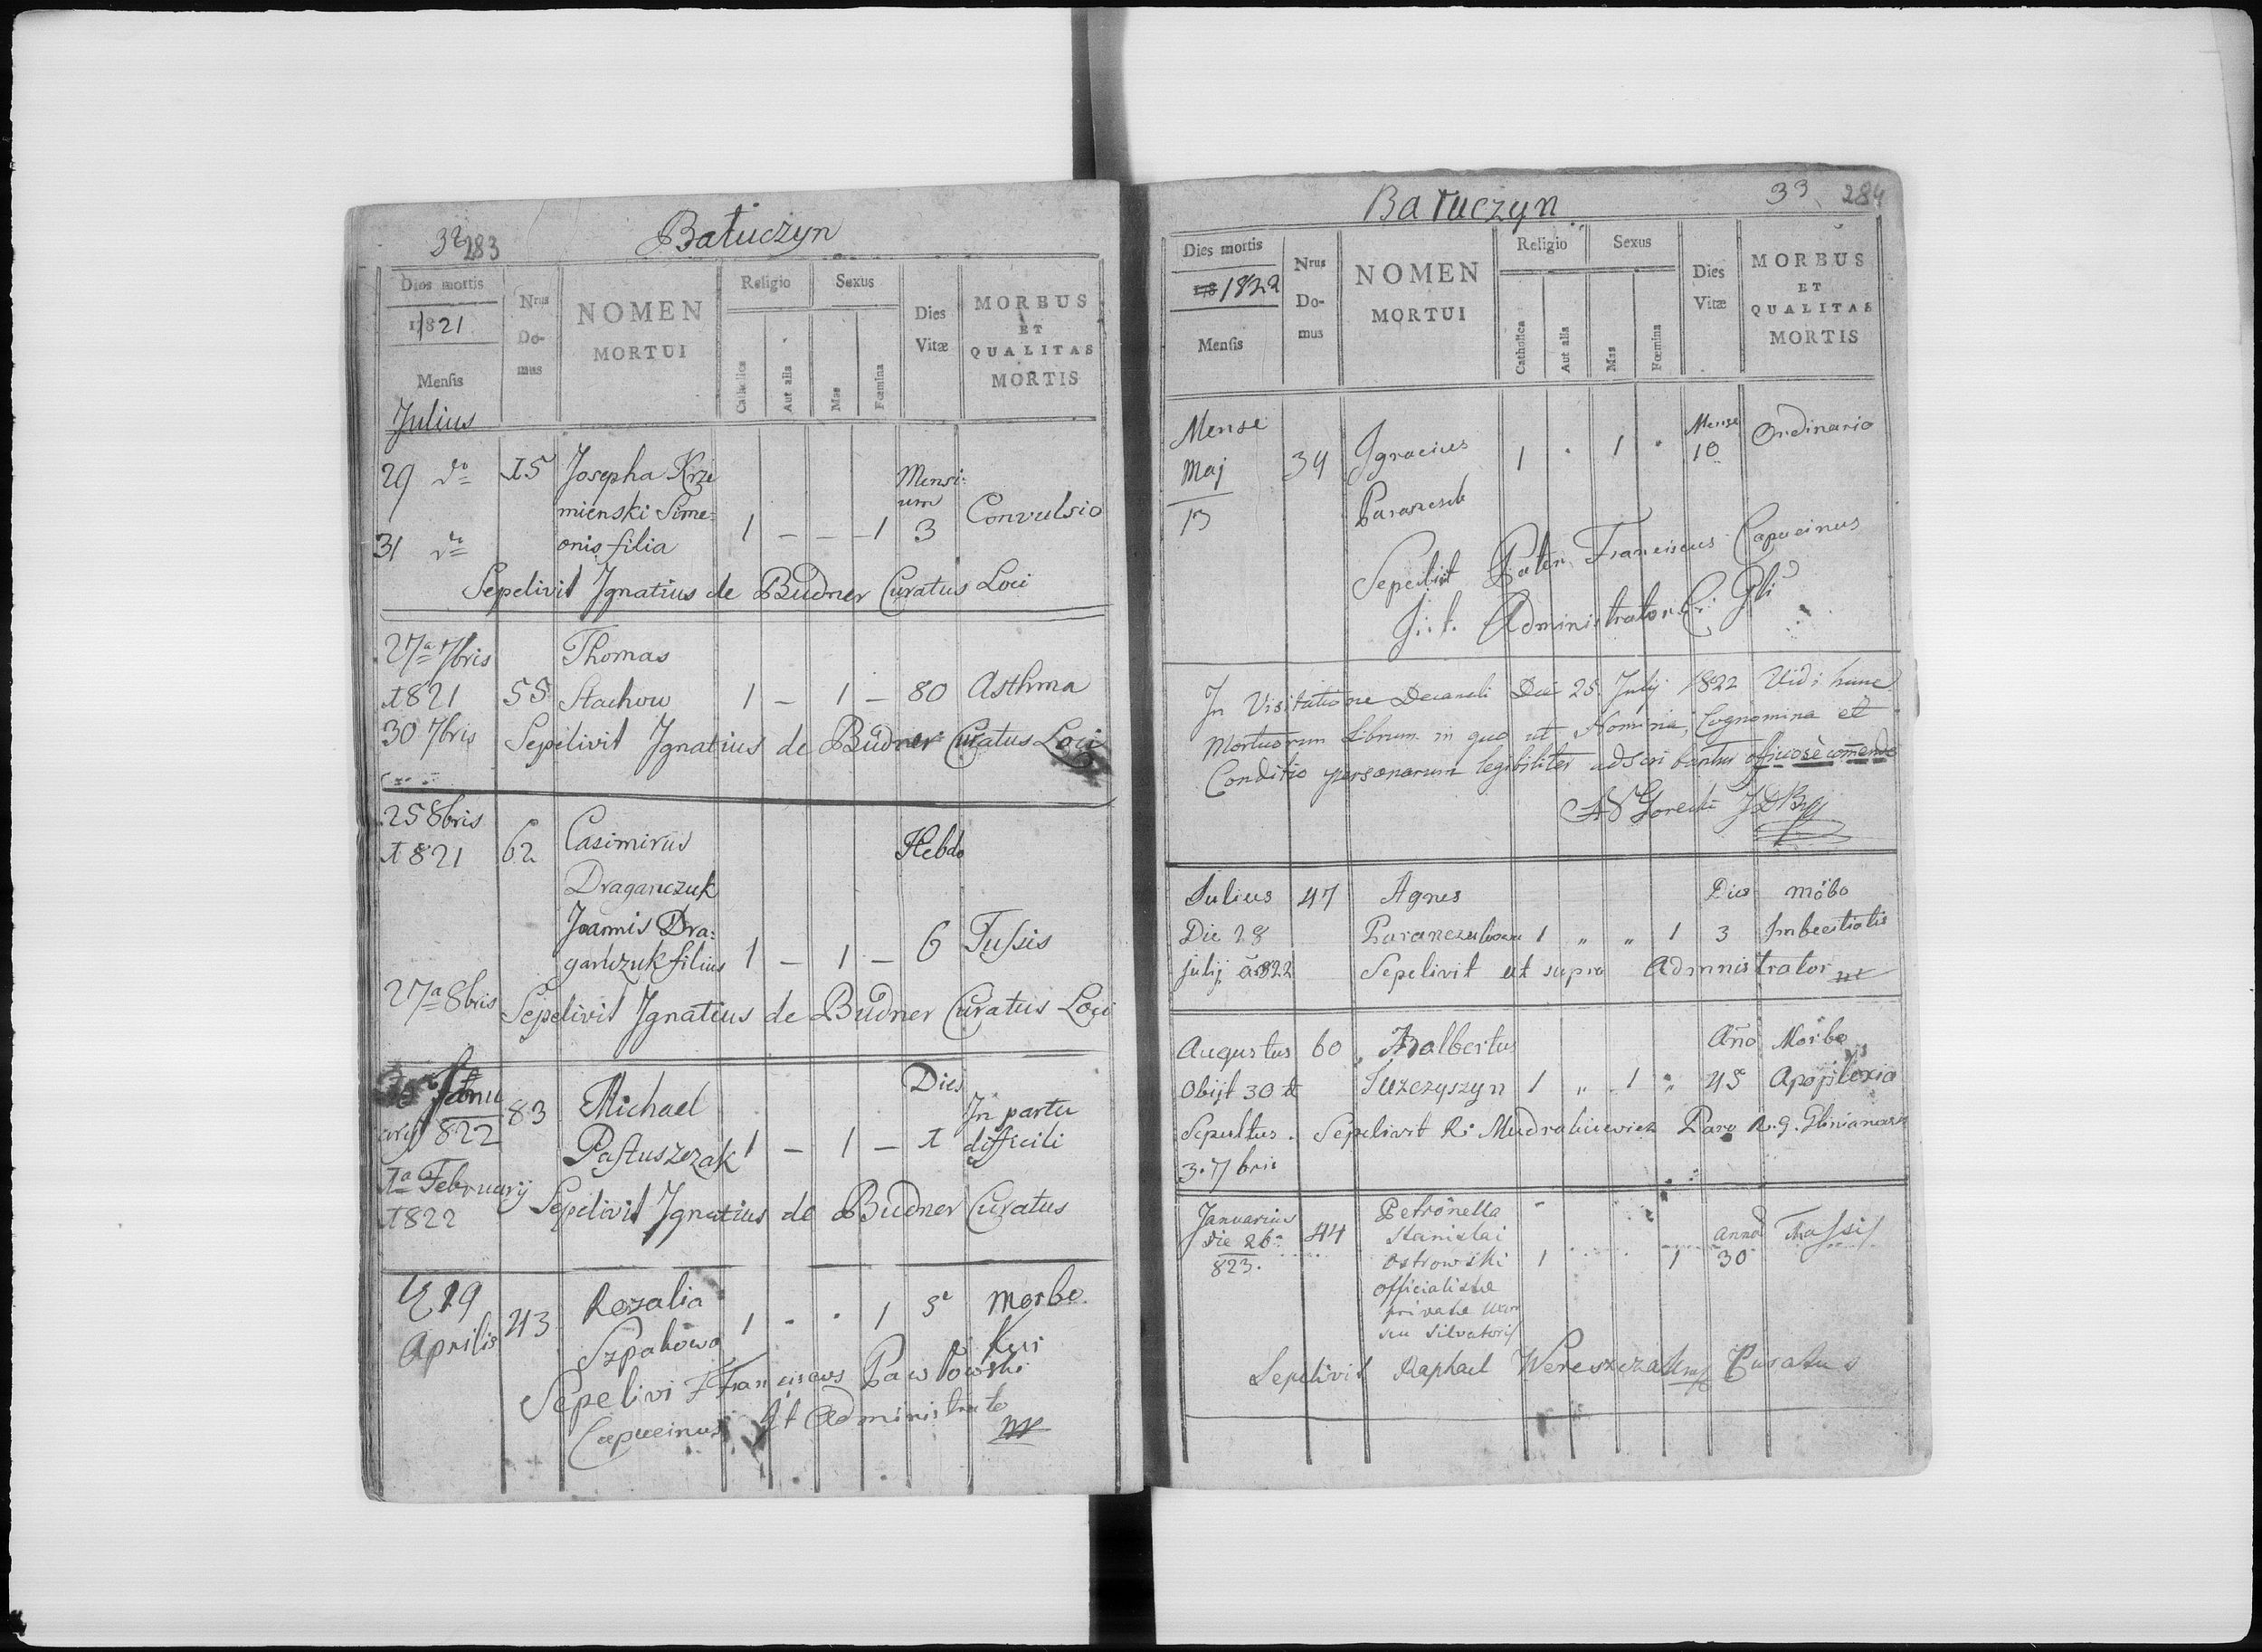 32 283 Batuczyn
Dies mortis
1821
Mensis
Julius
Nrus
Do-
mus
NOMEN
MORTUI
Religio
Catholica
Aut alia
Sexus
Mas
Fœmina
Dies
Vitæ
MORBUS
ET
QUALITAS
MORTIS
29 do 15 Josepha Krze
mienski Sime:
onis filia
31 do
1 – – 1
Mensi:
um
3
Convulsio
Sepelivit Ignatius de Budner Curatus Loci
27a 7bris Thomas
1821 55 Stachow 1 – 1 – 80 Asthma
30 7bris Sepelivit Ignatius de Budner Curatus Loci
25 8bris Casimirus
1821 62 Hebdo
Draganczuk
Joannis Dra:
ganczuk filius 1 – 1 – 6 Tussis
27a 8bris Sepelivit Ignatius de Budner Curatus Loci
Janu
arij 822 83 Michael Dies In partu
Pastuszczak 1 – 1 – 1 difficili
1a February
1822 Sepelivit Ignatius de Budner Curatus
19 43 Rozalia 1 . . 1 Morbo
Aprilis Szpakowa
Sepelivi Franciscus Pawłowski
Capucinus Administrator
Batuczyn 33 284
Dies mortis
1822
Mensis
Nrus
Do-
mus
NOMEN
MORTUI
Religio
Catholica
Aut alia
Sexus
Mas
Fœmina
Dies
Vitæ
MORBUS
ET
QUALITAS
MORTIS
Mense
Maj
13
34 Ignacius 1 . 1 . Mense
10 Ordinario
Sepelivit Pater Franciscus Capucinus
Administrator
In Visitatione Decanali Die 25 Julij 1822 Vidi hunc
Mortuorum Librum in quo ut Nomina, Cognomina et
Conditio personarum legibiliter adscribantur officiose comendo
Julius 47 Agnes Dies
Die 28 1 " " 1 3
Julij 822 Sepelivit ut supra Administrator
Augustus 60 Adalbertus Año Morbo
Obijt 30 1 " 1 " 45 Apoplexia
Sepultus. Sepelivit
3. 7bris
Januarius
Die 26a
823.
44
Petronella
Stanislai
Ostrowski
officialistae
privatae uxor
seu Silvatoris
1 1 anno
30
Sepelivit Raphael Curatus